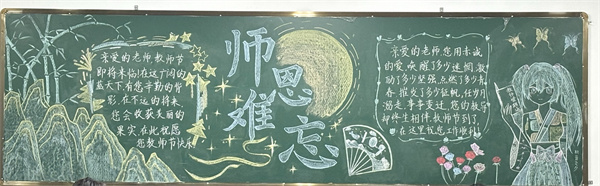 亲爱的老师,教师节
即将来临,在这广阔的
蓝天下,有您辛勤的背
影,在不远的将来,
您会收获美丽的
果实,在此祝愿
您教师节快乐
师恩难忘
亲爱的老师,您用赤诚
的爱,唤醒了多少迷惘,激
励了多少坚强,点燃了多少青
春,推交了多少征帆,任岁月
游走,事事变迁,您的教导
却终生相伴,教师节到了,
在这里祝您工作顺利!